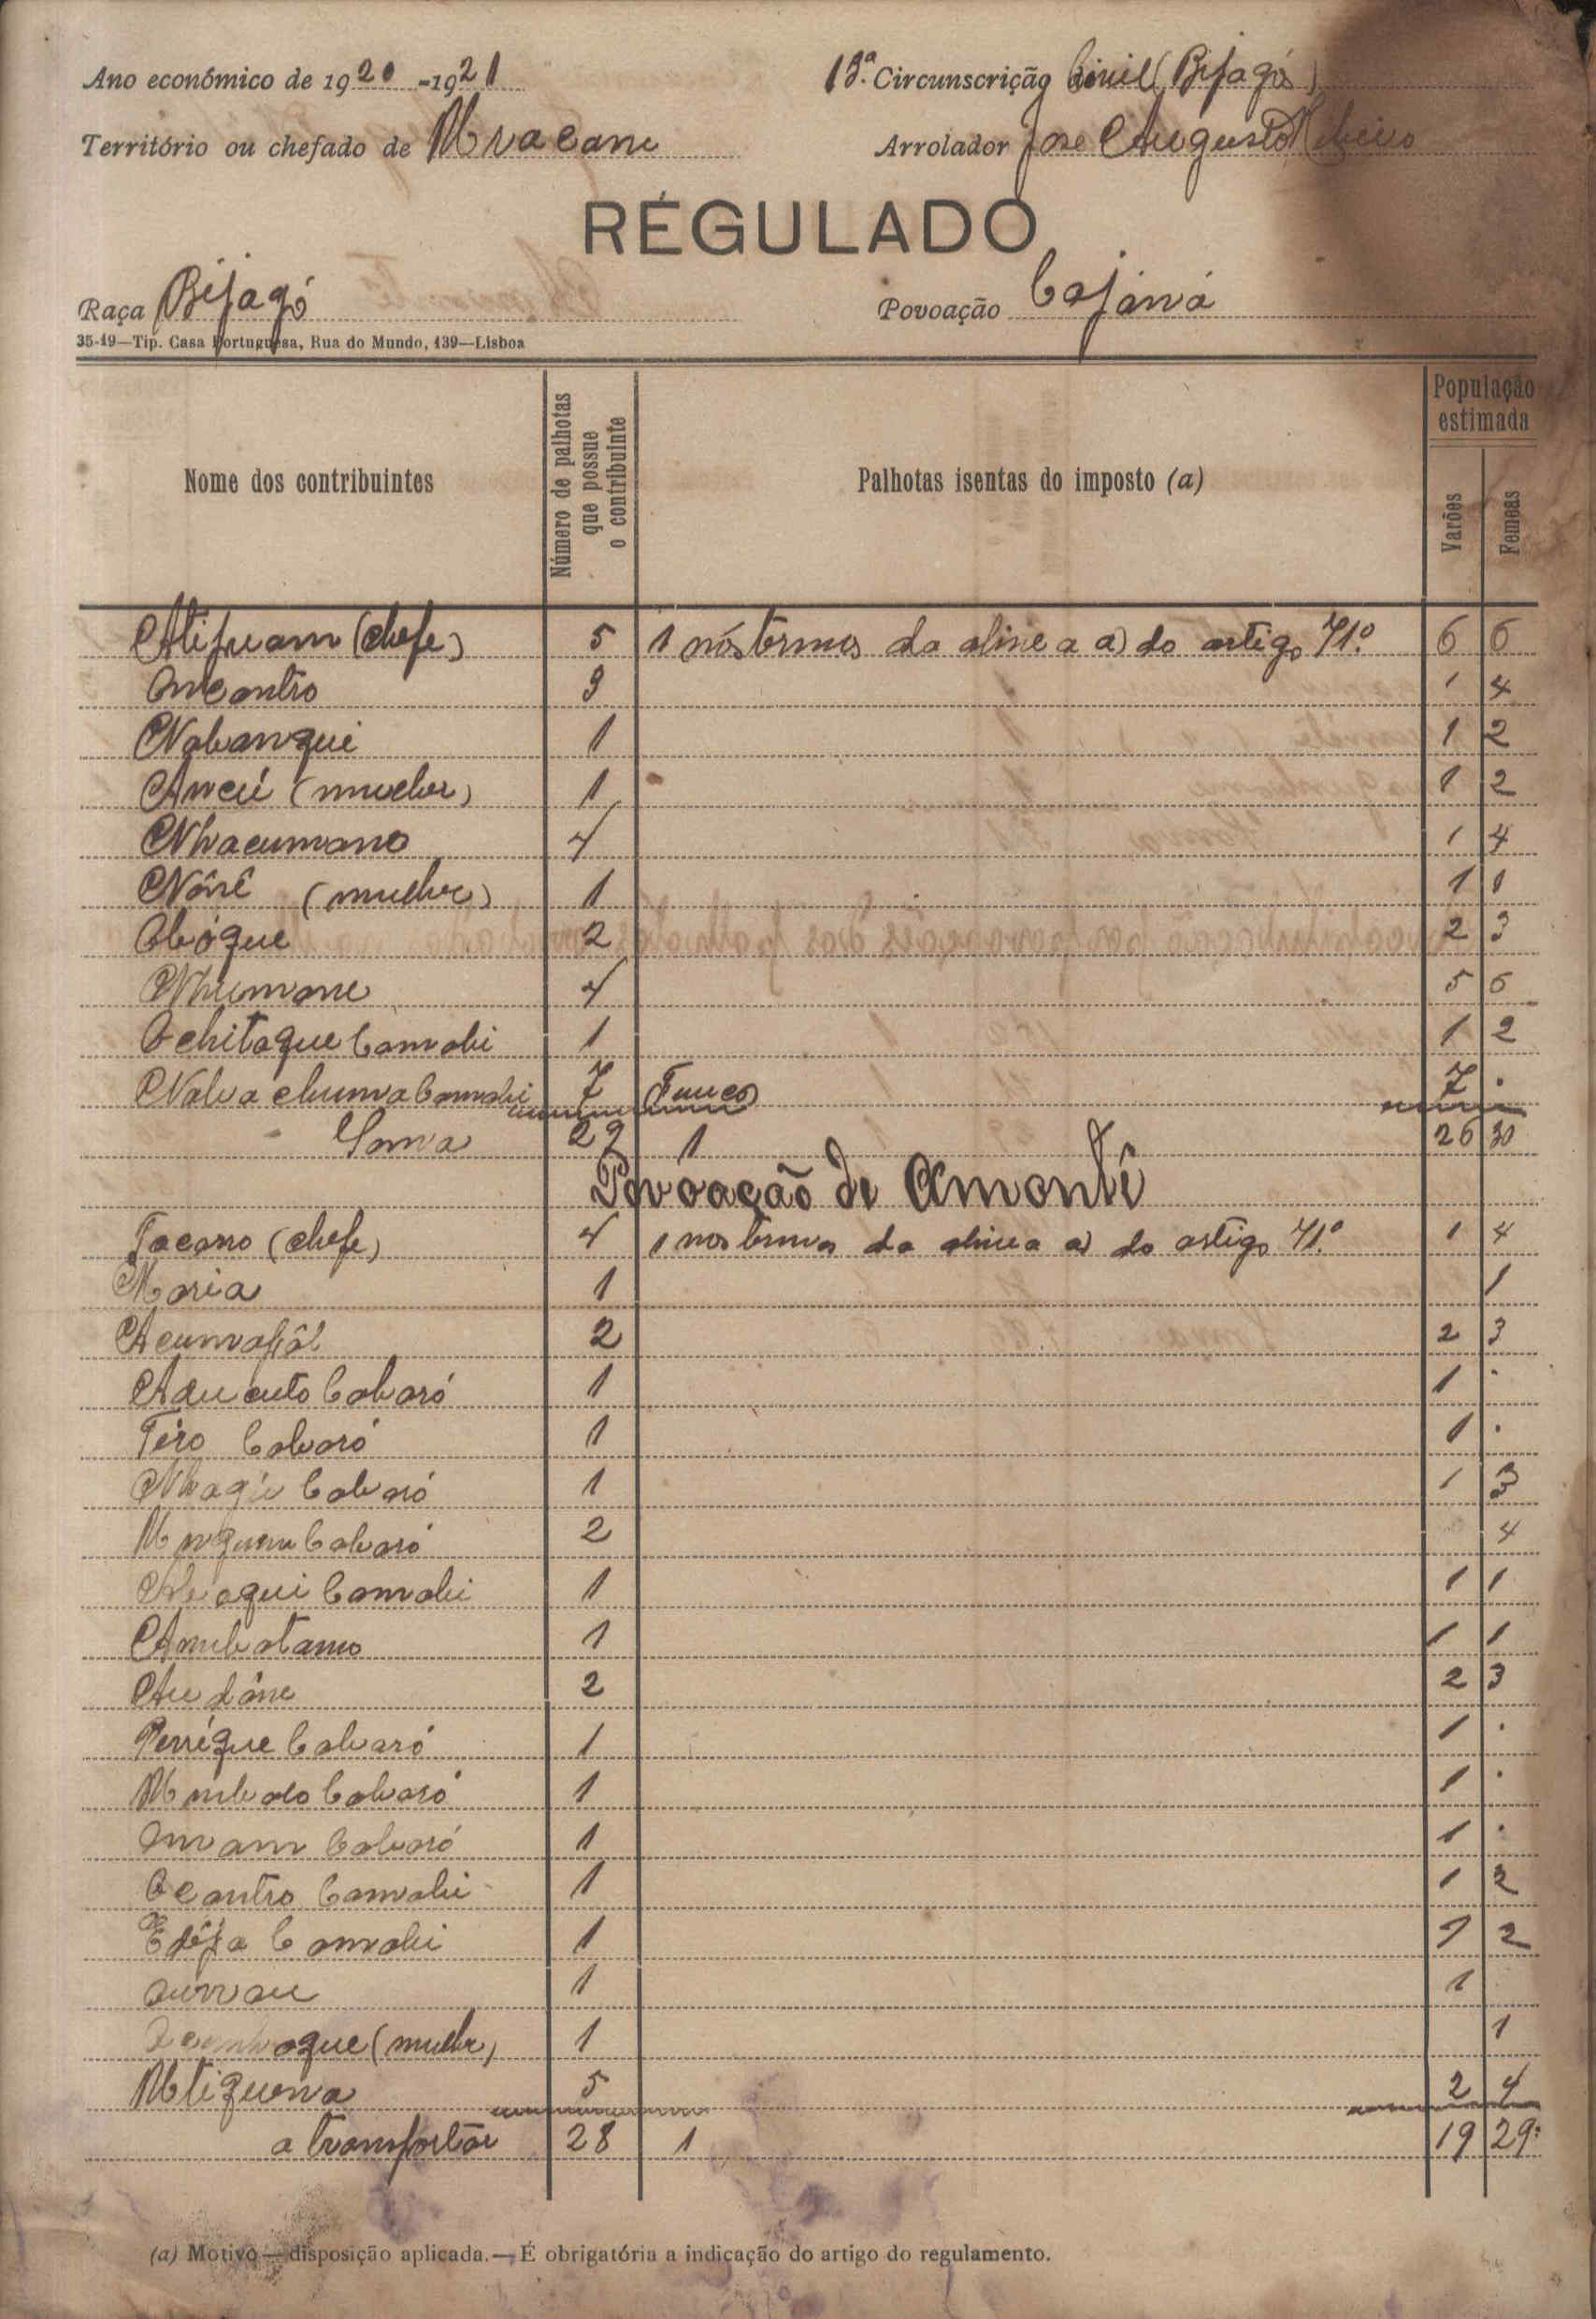 Ano económico de 1920-1921
13.ª Circunscrição Civil (Bijagós)
Território ou chefado de
Arrolador José Augusto Ribeiro
RÉGULADO
Raça Bijagó
Povoação Cajáná
35-19—Tip. Casa Portuguesa, Rua do Mundo, 139—Lisboa
Nome dos contribuintes
Número de palhotas que possue o contribuinte
Palhotas isentas do imposto (a)
População estimada
Varões
Femeas
(chefe) 5 1 nos termos da alinea a) do artigo 71.º 6 6
Oncantro 3 1 4
Nabanqui 1 1 2
Ancú (mulher) 1 1 2
Nhacumano 4 1 4
Nónê (mulher) 1 1 1
Obóque 2 2 3
Nhumane 4 5 6
Ochitaque Canhabi 1 1 2
7 7 .
Soma 29 1 26 30
Povoação de Amontê
Tacano (chefe) 4 1 nos termos da alinea a) do artigo 71.º 1 4
Maria 1 1
2 2 3
Cabaró 1 1 .
Têro Cabaró 1 1 .
Nhagú Cabaró 1 1 3
Cabaró 2 4
Canhabi 1 1 1
Ambatano 1 1 1
2 2 3
Penéque Cabaró 1 1 .
Cabaró 1 1 .
Cabaró 1 1 .
Ocantro Canhabi 1 1 2
Canhabi 1 1 2
1 1
(mulher) 1 1
5 2 4
a transportar 28 1 19 29
(a) Motivo — disposição aplicada.— É obrigatória a indicação do artigo do regulamento.